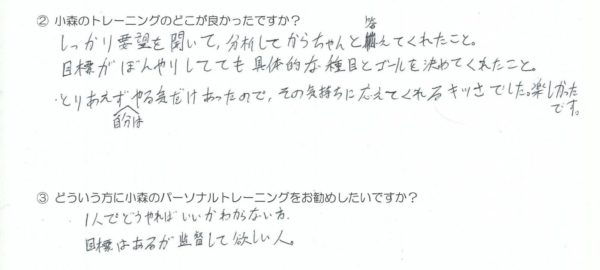 ② 小森のトレーニングのどこが良かったですか？
しっかり要望を聞いて、分析してからちゃんと答えてくれたこと。
目標がぼんやりしてても具体的な種目とゴールを決めてくれたこと。
・とりあえず自分はやる気だけあったので、その気持ちに応えてくれるキツさでした。楽しかった
です。
③ どういう方に小森のパーソナルトレーニングをお勧めしたいですか？
1人でどうやればいいかわからない方.
目標はあるが監督して欲しい人。